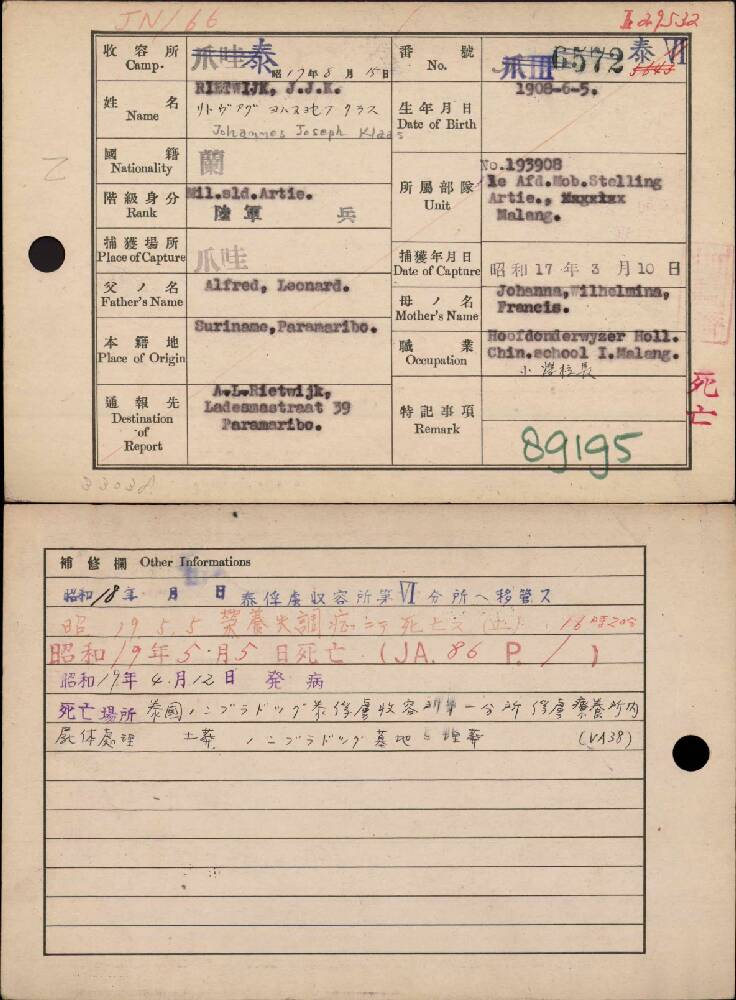 JN/66
II 29532
収容所 Camp.
爪哇 泰
昭17年8月15日
番號 No.
爪III 6572 泰VI
姓名 Name
RIETWIJK, J.J.K.
Johannes Joseph Klaas
生年月日 Date of Birth
1908-6-5.
國籍 Nationality
蘭
階級身分 Rank
Mil.sld.Artie.
陸軍 兵
所屬部隊 Unit
No.193908
1e Afd.Mob.Stelling
Artie.,
Malang.
捕獲場所 Place of Capture
爪哇
捕獲年月日 Date of Capture
昭和17年3月10日
父ノ名 Father's Name
Alfred, Leonard.
母ノ名 Mother's Name
Johanna,Wilhelmina,
Francis.
本籍地 Place of Origin
Suriname,Paramaribo.
職業 Occupation
Hoofdonderwyzer Holl.
Chin.school I.Malang.
小學校長
通報先 Destination of Report
A.L.Rietwijk,
Ladesmastraat 39
Paramaribo.
特記事項 Remark
89195
死亡
33038
補修欄 Other Informations
昭和18年 月 日 泰俘虜収容所第VI分所へ移管ス
昭19.5.5 榮養失調症ニテ死亡ス
昭和19年5月5日死亡 (JA. 86 P. 1)
昭和19年4月12日 発病
死亡場所 泰國ノンプラドック泰俘虜收容所第一分所俘虜療養所内
屍体處理 土葬 ノンプラドック墓地ニ埋葬 (VA38)